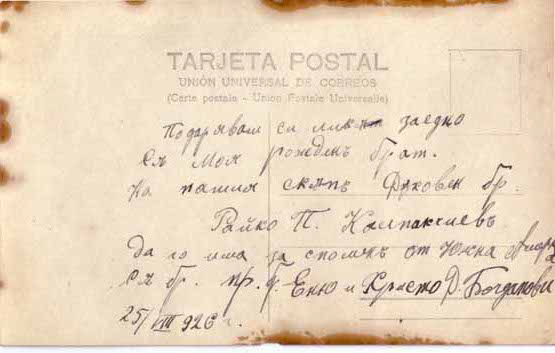 TARJETA POSTAL
UNIÓN UNIVERSAL DE CORREOS
(Carte postale - Union Postale Universelle)
Подарявам си лика заедно
съ моя рожденъ братъ.
На нашия скѫпъ Духовен бр.
Райко П. Калпакчиевъ
да го има за споменъ от Южна
съ бр. пр. Еню и Христо Д. Богданови
25/VIII 926 г.